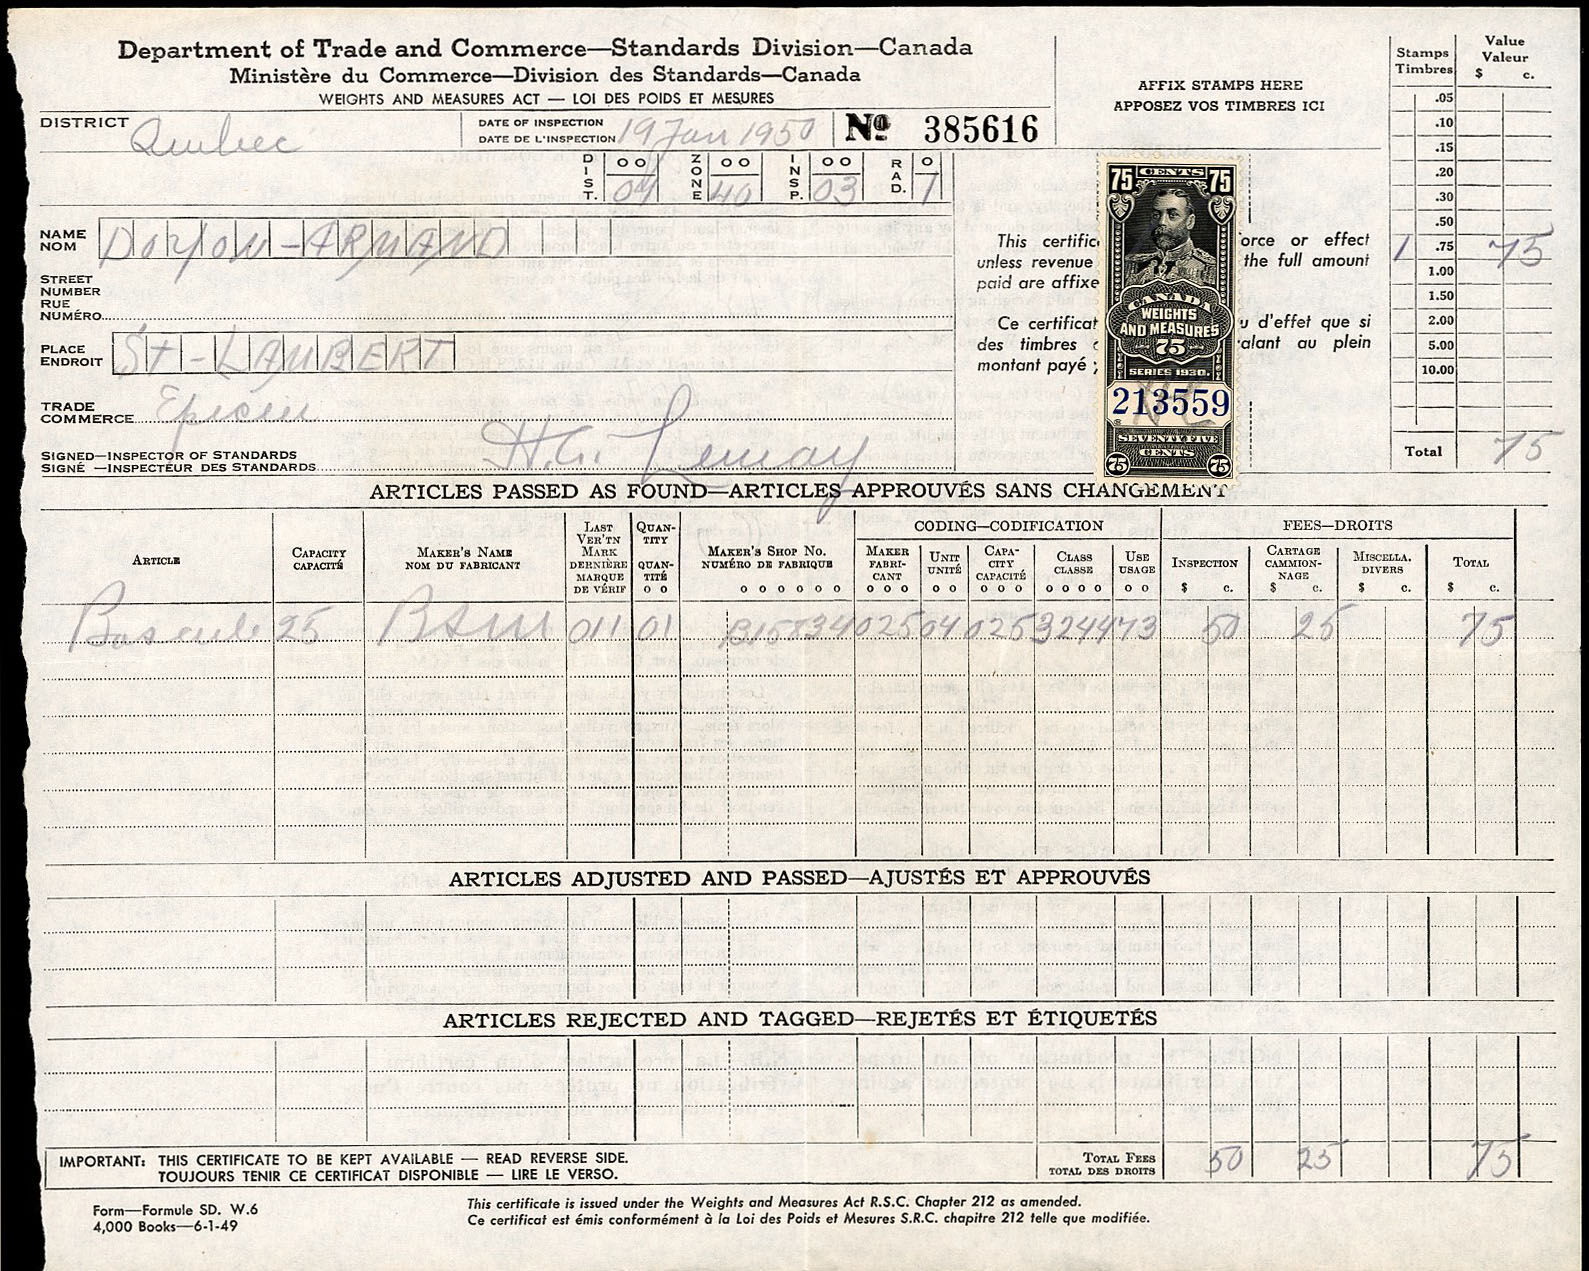 Department of Trade and Commerce—Standards Division—Canada
Ministère du Commerce—Division des Standards—Canada
WEIGHTS AND MEASURES ACT — LOI DES POIDS ET MESURES
DISTRICT Quebec
DATE OF INSPECTION
DATE DE L'INSPECTION 19 Jan 1950
No 385616
DIST. 00 04 ZONE 00 40 INSP. 00 03 RAD. 0 1
NAME
NOM DOYON-ARMAND
STREET
NUMBER
RUE
NUMÉRO
PLACE
ENDROIT ST-LAMBERT
TRADE
COMMERCE Epicier
SIGNED—INSPECTOR OF STANDARDS
SIGNÉ—INSPECTEUR DES STANDARDS H.G. Lemay
AFFIX STAMPS HERE
APPOSEZ VOS TIMBRES ICI
This certific orce or effect
unless revenue the full amount
paid are affixe
Ce certificat u d'effet que si
des timbres alant au plein
montant payé ;
75 CENTS 75
CANADA
WEIGHTS
AND MEASURES
75
SERIES 1930.
213559
SEVENTY FIVE
75 CENTS 75
Stamps
Timbres
Value
Valeur
$ c.
.05
.10
.15
.20
.30
.50
1 .75 75
1.00
1.50
2.00
5.00
10.00
Total 75
ARTICLES PASSED AS FOUND—ARTICLES APPROUVÉS SANS CHANGEMENT
ARTICLE
CAPACITY
CAPACITÉ
MAKER'S NAME
NOM DU FABRICANT
LAST
VER'TN
MARK
DERNIÈRE
MARQUE
DE VÉRIF
QUAN-
TITY
QUAN-
TITÉ
O O
MAKER'S SHOP NO.
NUMÉRO DE FABRIQUE
O O O O O O
CODING—CODIFICATION
MAKER
FABRI-
CANT
O O O
UNIT
UNITÉ
O O
CAPA-
CITY
CAPACITÉ
O O O
CLASS
CLASSE
O O O O
USE
USAGE
O O
FEES—DROITS
INSPECTION
$ c.
CARTAGE
CAMMION-
NAGE
$ c.
MISCELLA.
DIVERS
$ c.
TOTAL
$ c.
Bascule 25 011 01 B15834 025 04 025 3244 73 50 25 75
ARTICLES ADJUSTED AND PASSED—AJUSTÉS ET APPROUVÉS
ARTICLES REJECTED AND TAGGED—REJETÉS ET ÉTIQUETÉS
TOTAL FEES
TOTAL DES DROITS 50 25 75
IMPORTANT: THIS CERTIFICATE TO BE KEPT AVAILABLE — READ REVERSE SIDE.
TOUJOURS TENIR CE CERTIFICAT DISPONIBLE — LIRE LE VERSO.
Form—Formule SD. W.6
4,000 Books—6-1-49
This certificate is issued under the Weights and Measures Act R.S.C. Chapter 212 as amended.
Ce certificat est émis conformément à la Loi des Poids et Mesures S.R.C. chapitre 212 telle que modifiée.